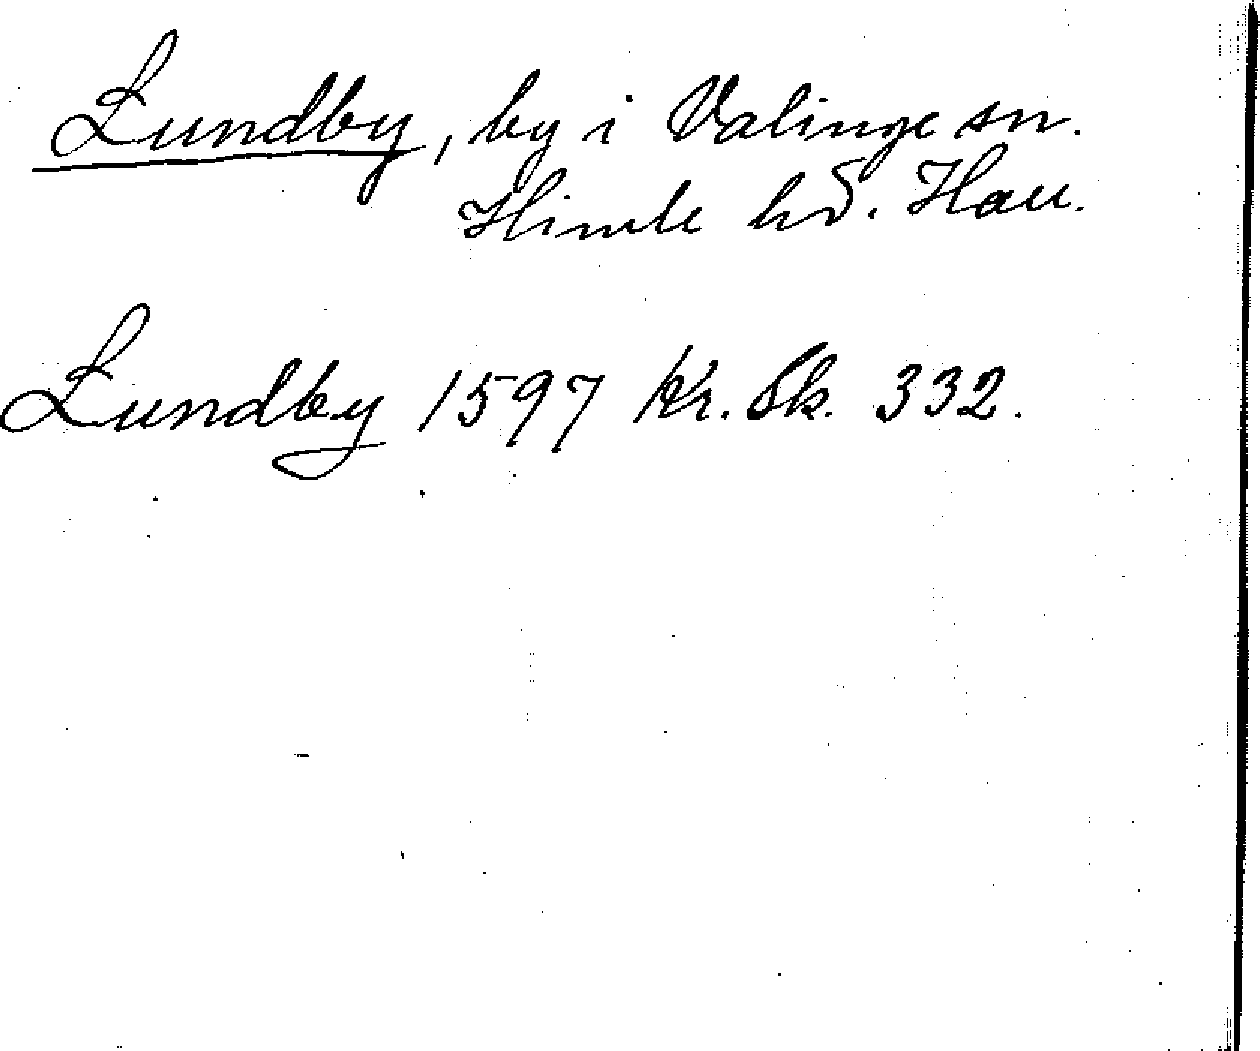 Lundby, by i Valinge sn.
Himle hd. Hall.
Lundby 1597 Kr. Sk. 332.